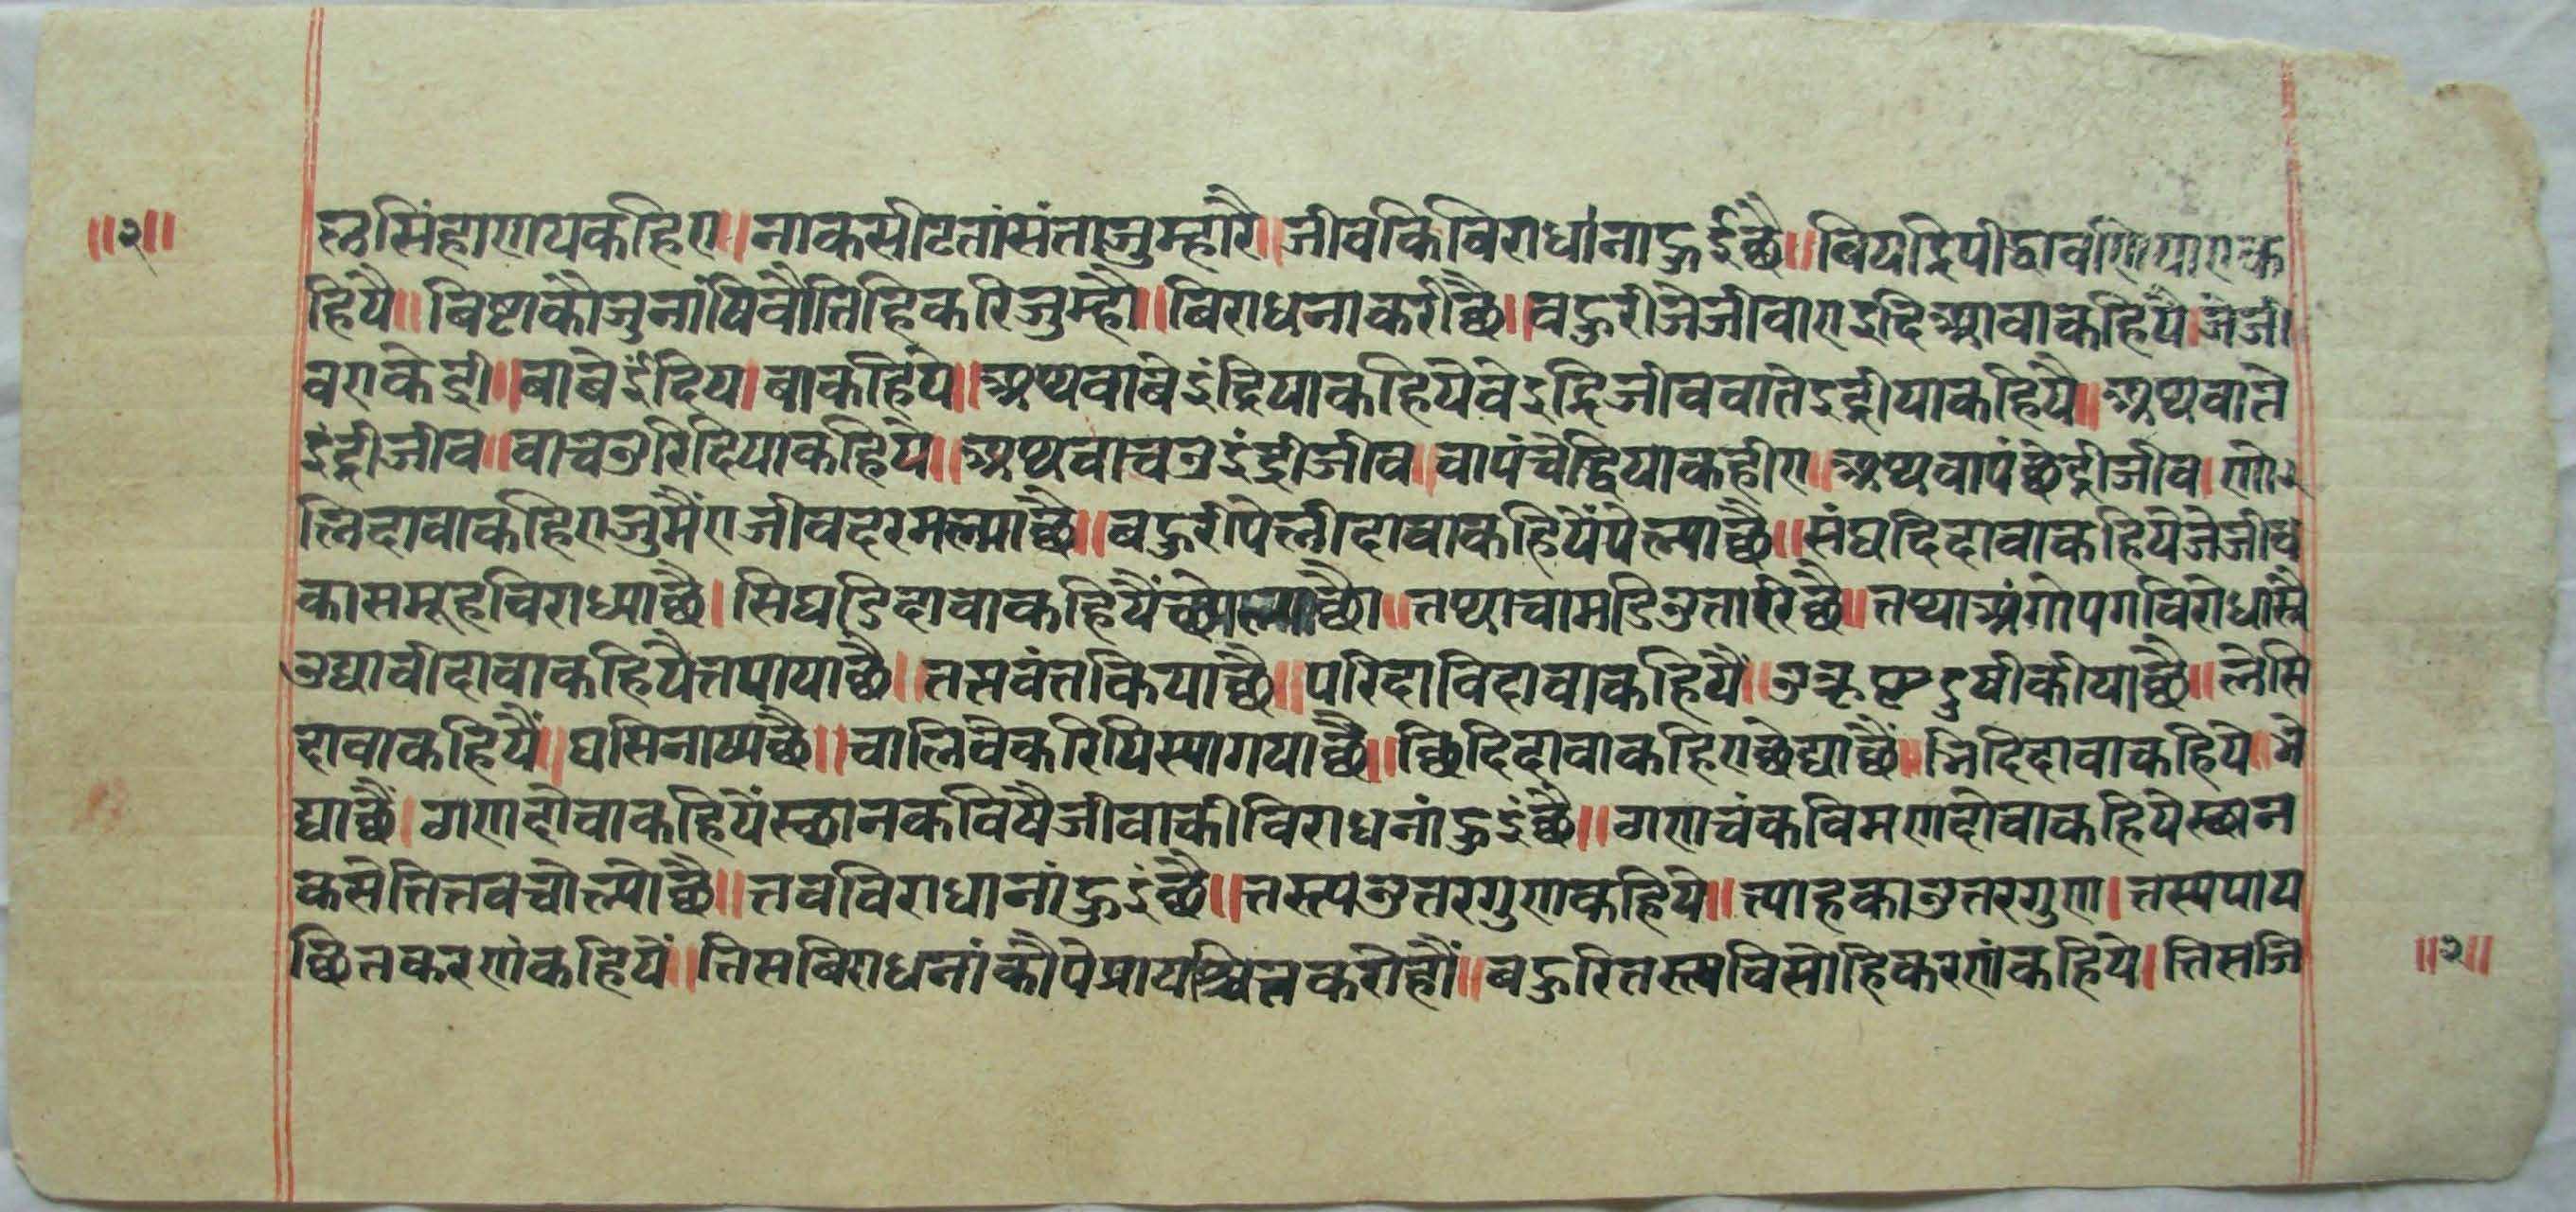 ॥२॥
ल्लसिंहाणयकहिए॥नाकसीटतांसंताजुम्हारै॥जीवकिविराधांनाहुईछै॥वियदिपीद्वावणियाएक
हियै॥बिष्टाकौजुनांषिवौतिहिकरिजुम्है॥बिराधनाकरीछै॥बहुरीजेजीवाएइंदिआवाकहियै।जेजी
वएकेद्री॥बाबेइंदिय।बाकहिंये॥अथवाबेइंद्रियाकहियेवेइद्रिजीववातेइद्रीयाकहियै॥अथवाते
इंद्रीजीव॥वाचउरिदियाकहियै॥अथवाचउइंद्रीजीव॥वापंचेद्रियाकहीए॥अथवापंछेद्रीजीव।णोइ
लिदावाकहिएजुमैएजीवदरमल्याछै॥बहुरीपेल्लीदावाकहियैंपेल्याछै॥संघदिदावाकहियेजेजीव
कासमूहविराध्याछै।सिघडिदावाकहियैं छै॥तथाचामडिउतारिछै॥तथाअंगोपगविरोधाछै
उद्यावीदावाकहियैतपायाछै॥तसवंतकियाछै॥परिदाविदावाकहियैं॥उत्कृष्टदुषीकीयाछै॥लेसि
दावाकहियैं॥घसिनाष्याछै॥वालिवेकरिपिस्यागयाछै॥छिदिदावाकहिएछेद्याछैं॥भिदिदावाकहिये॥भे
द्याछैं।गणादोवाकहियेंस्थानकविषैजीवाकीविराधनांहुइंछै॥गणाचंकविमणादोवाकहियेस्थान
कसेतितवचोल्योछै॥तवविराधानांहुइंछै॥तस्त्पउतरगुणकहिये॥त्याहकाउतरगुण।तस्यपाय
छितकरणंकहियें॥तिसबिराधनांकौपेप्रायश्चितकरीहौं॥बहुरितस्त्यविसोहिकरणंकहिये।तिसजि
॥२॥